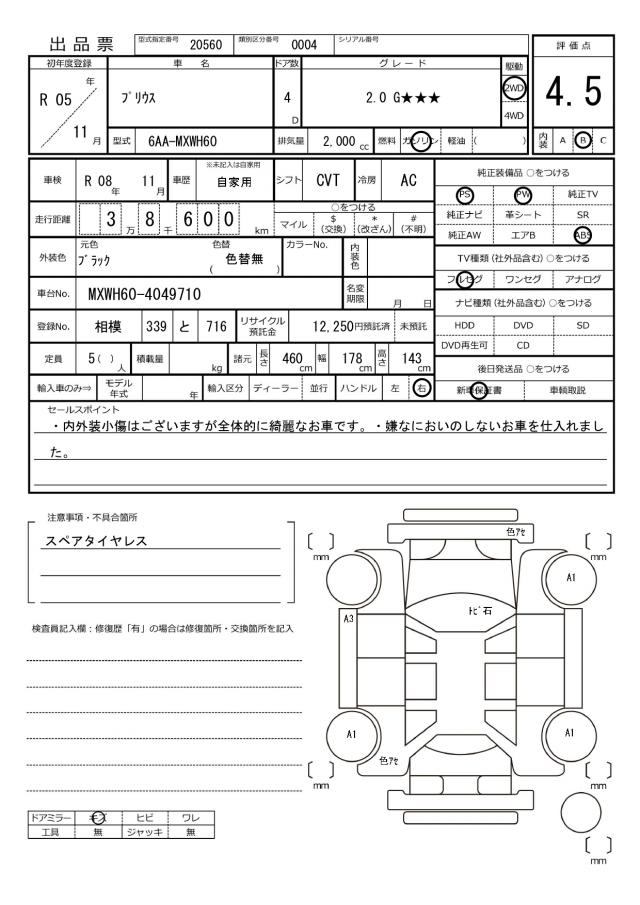 出品票
型式指定番号 20560 類別区分番号 0004 シリアル番号
評価点
4.5
内装 A B C
初年度登録 車名 ドア数 グレード 駆動
R 05 年 11 月
ﾌﾟﾘｳｽ 4 D 2.0 G★★★ 2WD
4WD
型式 6AA-MXWH60 排気量 2,000 cc 燃料 ガソリン 軽油 ( )
車検 R 08 年 11 月 車歴 ※未記入は自家用 自家用 シフト CVT 冷房 AC
走行距離 3 万 8 千 6 0 0 km
○をつける
マイル $(交換) *(改ざん) #(不明)
外装色 元色 ﾌﾞﾗｯｸ 色替 ( 色替無 ) カラーNo. 内装色
車台No. MXWH60-4049710 名変期限 月 日
登録No. 相模 339 と 716 リサイクル預託金 12,250円預託済 未預託
定員 5( ) 人 積載量 kg 諸元 長さ 460 cm 幅 178 cm 高さ 143 cm
輸入車のみ⇒ モデル年式 年 輸入区分 ディーラー 並行 ハンドル 左 右
純正装備品 ○をつける
PS PW 純正TV
純正ナビ 革シート SR
純正AW エアB ABS
TV種類(社外品含む) ○をつける
フルセグ ワンセグ アナログ
ナビ種類(社外品含む) ○をつける
HDD DVD SD
DVD再生可 CD
後日発送品 ○をつける
新車保証書 車輌取説
セールスポイント
・内外装小傷はございますが全体的に綺麗なお車です。・嫌なにおいのしないお車を仕入れまし
た。
注意事項・不具合箇所
スペアタイヤレス
検査員記入欄：修復歴「有」の場合は修復箇所・交換箇所を記入
ドアミラー キズ ヒビ ワレ
工具 無 ジャッキ 無
色ｱｾ
mm mm
A1
ﾄﾋﾞ石
A3
A1 A1
色ｱｾ
mm mm
mm